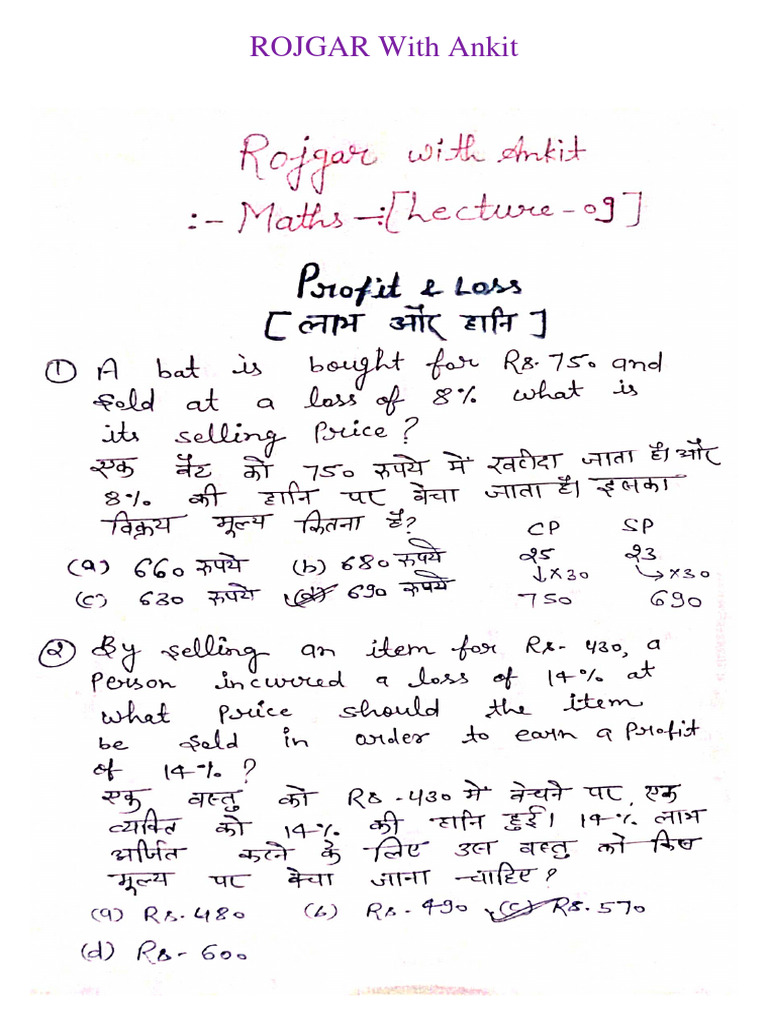 ROJGAR With Ankit
Rojgar with Ankit
:- Maths -:[Lecture-09]
Profit & Loss
[लाभ और हानि]
① A bat is bought for Rs. 750 and
sold at a loss of 8% what is
its selling Price?
एक बैट को 750 रुपये में खरीदा जाता है। और
8% की हानि पर बेचा जाता है। इसका
विक्रय मूल्य कितना है?
CP SP
(a) 660 रुपये (b) 680 रुपये
25 23
↓×30 ↘×30
(c) 630 रुपये (d) 690 रुपये
750 690
② By selling an item for Rs- 430, a
Person incurred a loss of 14% at
what price should the item
be sold in order to earn a Profit
of 14%?
एक वस्तु को Rs-430 में बेचने पर, एक
व्यक्ति को 14% की हानि हुई। 14% लाभ
अर्जित करने के लिए उस वस्तु को किस
मूल्य पर बेचा जाना चाहिए?
(a) Rs.480 (b) Rs.490 (c) Rs.570
(d) Rs-600